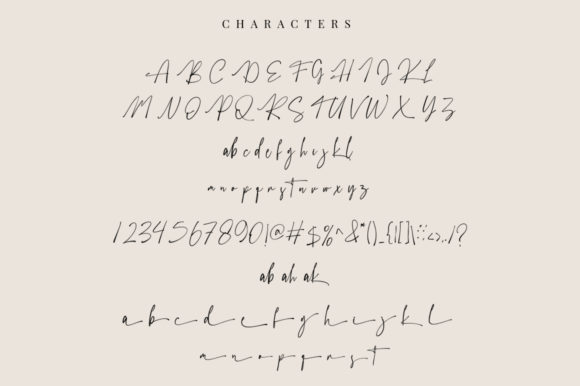 CHARACTERS
A B C D E F G H I J K L
M N O P Q R S T U V W X Y Z
a b c d e f g h i j k l
m n o p q r s t u v w x y z
1234567890!@#$%^&*()_{}[]\:;<>,./?
ab ah ak
a b c d e f g h i j k l
m n o p q r s t